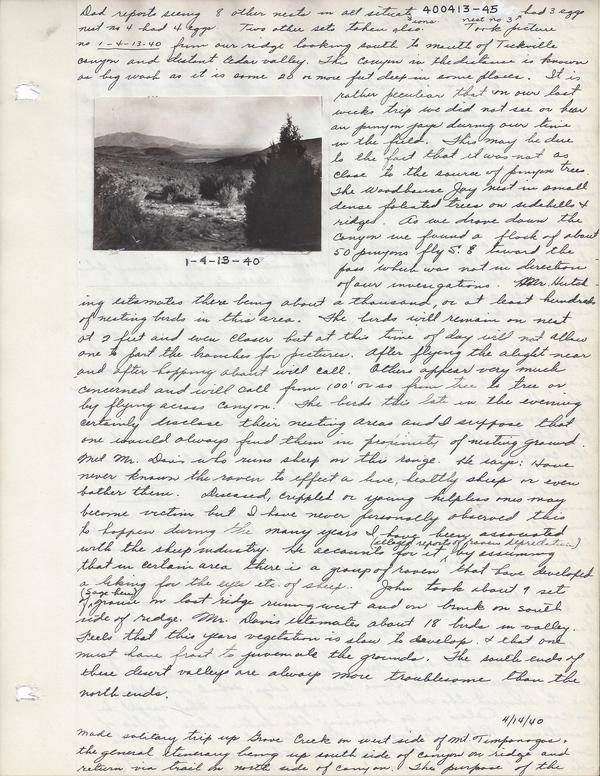 Dad reports seeing 8 other nests in all situations. 400413-45 had 3 eggs
nest no 4 had 4 eggs Two other sets taken also. nest no 3 Took picture
no 1-4-13-40 from our ridge looking south to mouth of Tickville
canyon and distant Cedar valley. The canyon in the distance is known
as big wash as it is some 20 or more feet deep in some places. It is
rather peculiar that on our last
weeks trip we did not see or hear
an pinyon jays during our time
in the field. This may be due
to the fact that it was not as
close to the source of pinyon trees.
The Woodhouse Jay nest in small
dense foliated trees on sidehills &
ridges. As we drove down the
Canyon we found a flock of about
50 pinyons fly S. E toward the
pass which was not in direction
of our invesigations. Mr. Hutch-
1-4-13-40
ing estimates there being about a thousand, or at least hundreds
of nesting birds in this area. The birds will remain on nest
at 2 feet and even closer but at this time of day will not allow
one to part the branches for pictures. After flying the alight near
and after hopping about will call. Others appear very much
concerned and will call from 100' or so from tree to tree or
by flying across canyon. The birds this late in the evening
certainly disclose their nesting areas and I suppose that
one would always find them in proximity of nesting ground.
Met Mr. Davis who runs sheep on this range. He says: Have
never known the raven to effect a live, healthy sheep or even
bother them. Diseased, crippled or young helpless ones may
become victim but I have never personally observed this
to happen during the many years I have been associated
with the sheep industry. He accounts for it (alleged reports of raven depredation) by assuming
that in certain area there is a group of raven that have developed
a liking for the eyes etc. of sheep. John took about 9 set
(Sage hen)
of grouse on last ridge running west and on bunk on south
side of ridge. Mr. Davis estimates about 18 birds in valley.
Feels that this years vegetation is slow to develop & that one
must have frost to juvenate the grounds. The south ends of
these desert valleys are always more troublesome than the
north ends.
4/14/40
Made solitary trip up Grove Creek on west side of Mt Timpanogos,
the general itinerary being up south side of canyon on ridge and
return via trail on north side of canyon. The purpose of the